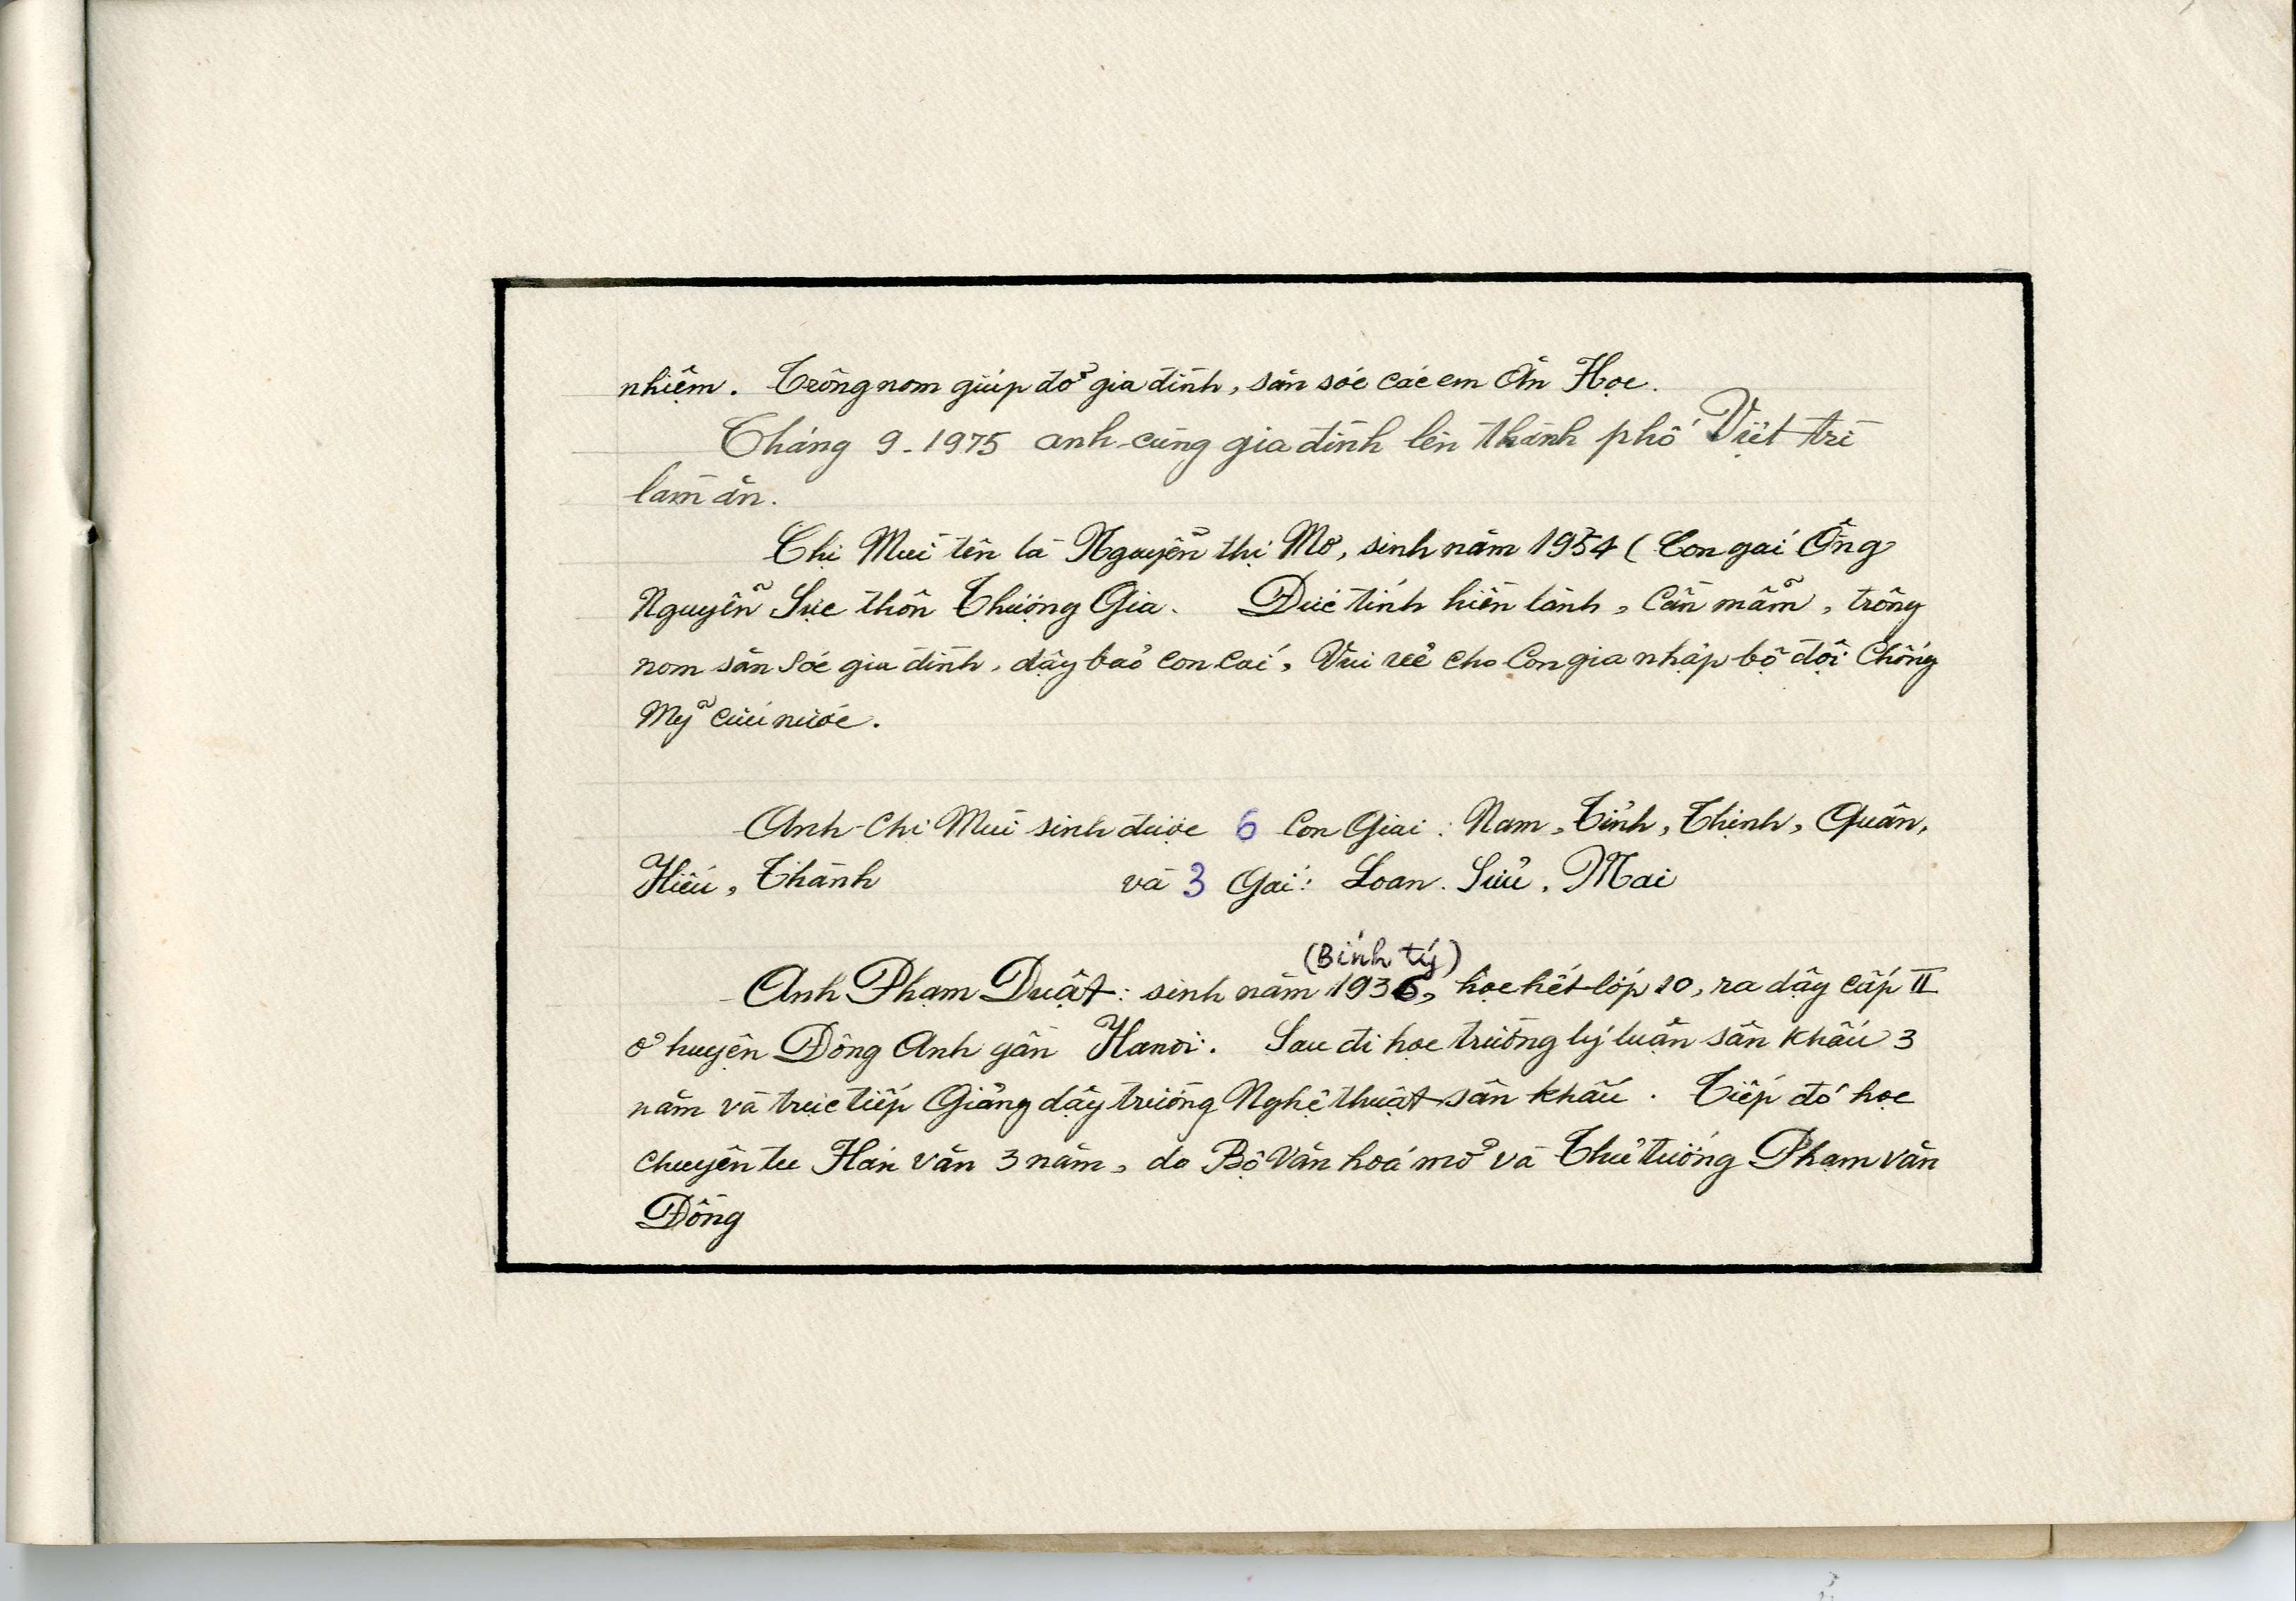 nhiệm. Trông nom giúp đỡ gia đình, săn sóc các em Ăn Học.
Tháng 9-1975 anh cùng gia đình lên thành phố Việt trì
làm ăn.
Chị Mùi tên là Nguyễn thị Mơ, sinh năm 1934 (Con gái Ông
Nguyễn Sực thôn Thượng Gia. Đức tính hiền lành, Cần mẫn, trông
nom săn sóc gia đình, dậy bảo con cái, Vui vẻ cho Con gia nhập bộ đội Chống
Mỹ cứu nước.
Anh Chị Mùi sinh được 6 Con Giai: Nam, Tỉnh, Thịnh, Quân,
Hiếu, Thành và 3 Gái: Loan. Sửu, Mai
(Bính tý)
- Anh Phạm Duật: sinh năm 1936, học hết lớp 10, ra dậy cấp II
ở huyện Đông Anh gần Hanoi. Sau đi học trường lý luận sân khấu 3
năm và trực tiếp Giảng dậy trường Nghệ thuật sân khấu. Tiếp đó học
chuyên tu Hán văn 3 năm, do Bộ Văn hoá mở và Thủ tướng Phạm văn
Đồng